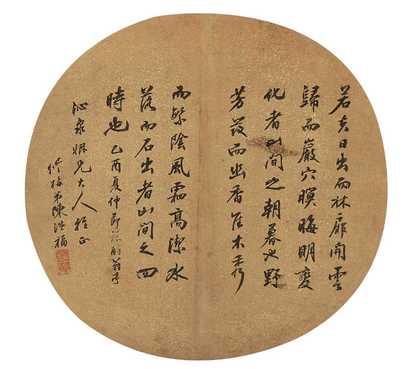 若夫日出而林霏開雲
歸而巖穴暝晦明變
化者山間之朝暮也野
芳發而幽香佳木秀
而繁陰風霜高潔水
落而石出者山間之四
時也乙酉夏仲節
沁泉姻兄大人雅正
梅弟陳